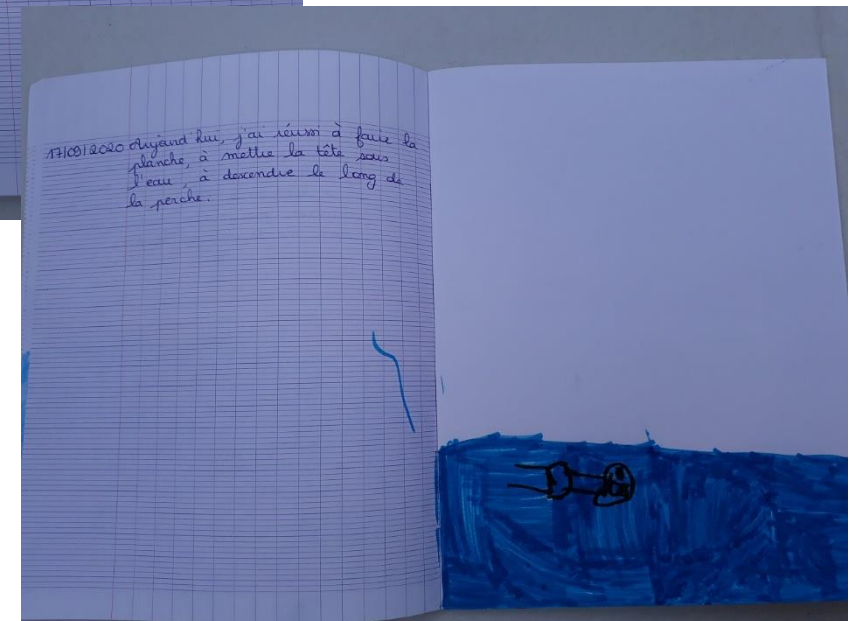 17/09/2020 Aujourd'hui, j'ai réussi à faire la
planche, à mettre la tête sous
l'eau, à descendre le long de
la perche.